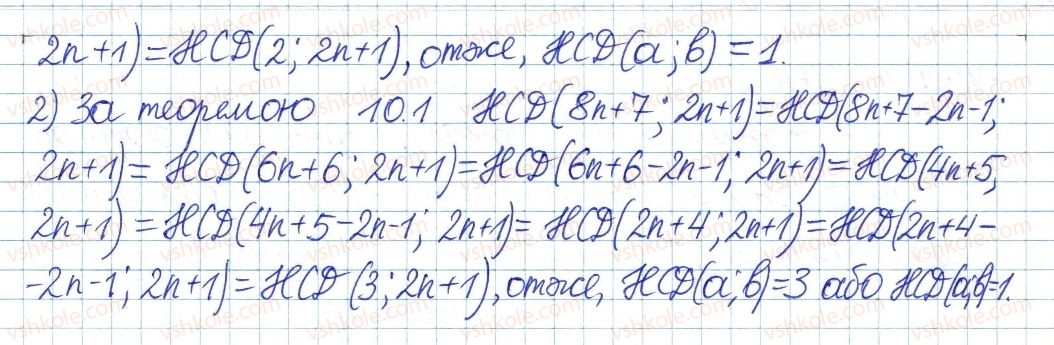 2n+1)=НСД(2; 2n+1), отже, НСД(a;b)=1.
2) За теоремою 10.1 НСД(8n+7; 2n+1)=НСД(8n+7-2n-1;
2n+1)=НСД(6n+6; 2n+1)=НСД(6n+6-2n-1; 2n+1)=НСД(4n+5;
2n+1)=НСД(4n+5-2n-1; 2n+1)=НСД(2n+4; 2n+1)=НСД(2n+4-
-2n-1; 2n+1)=НСД(3; 2n+1), отже, НСД(a;b)=3 або НСД(a;b)=1.